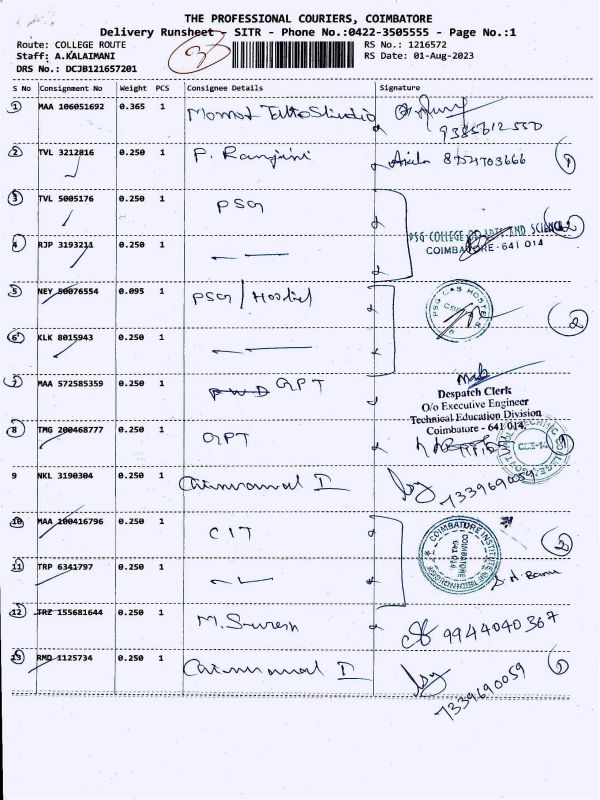 THE PROFESSIONAL COURIERS, COIMBATORE
Delivery Runsheet - SITR - Phone No.:0422-3505555 - Page No.:1
Route: COLLEGE ROUTE
RS No.: 1216572
Staff: A.KALAIMANI
RS Date: 01-Aug-2023
DRS No.: DCJB121657201
S No Consignment No Weight PCS Consignee Details Signature
1 MAA 106051692 0.365 1
2 TVL 3212816 0.250 1 P. Ranjini
1
3 TVL 5005176 0.250 1 PSG
PSG COLLEGE OF ARTS AND SCIENCE
COIMBATORE - 641 014
2
4 RJP 3193211 0.250 1
5 NEY 50076554 0.095 1 PSG / Hostel
PSG CAS HOSTELS
2
6 KLK 8015943 0.250 1
7 MAA 572585359 0.250 1 PWD GPT
Despatch Clerk
O/o Executive Engineer
Technical Education Division
Coimbatore - 641 014.
8 TMG 200468777 0.250 1 GPT
9 NKL 3190304 0.250 1 7339690059
10 MAA 100416796 0.250 1 CIT
COIMBATORE INSTITUTE OF TECHNOLOGY
COIMBATORE
641 014
2
11 TRP 6341797 0.250 1
S. H. Banu
12 TRZ 155681644 0.250 1 M. Suresh 9944040367
13 RMD 1125734 0.250 1 7339690059